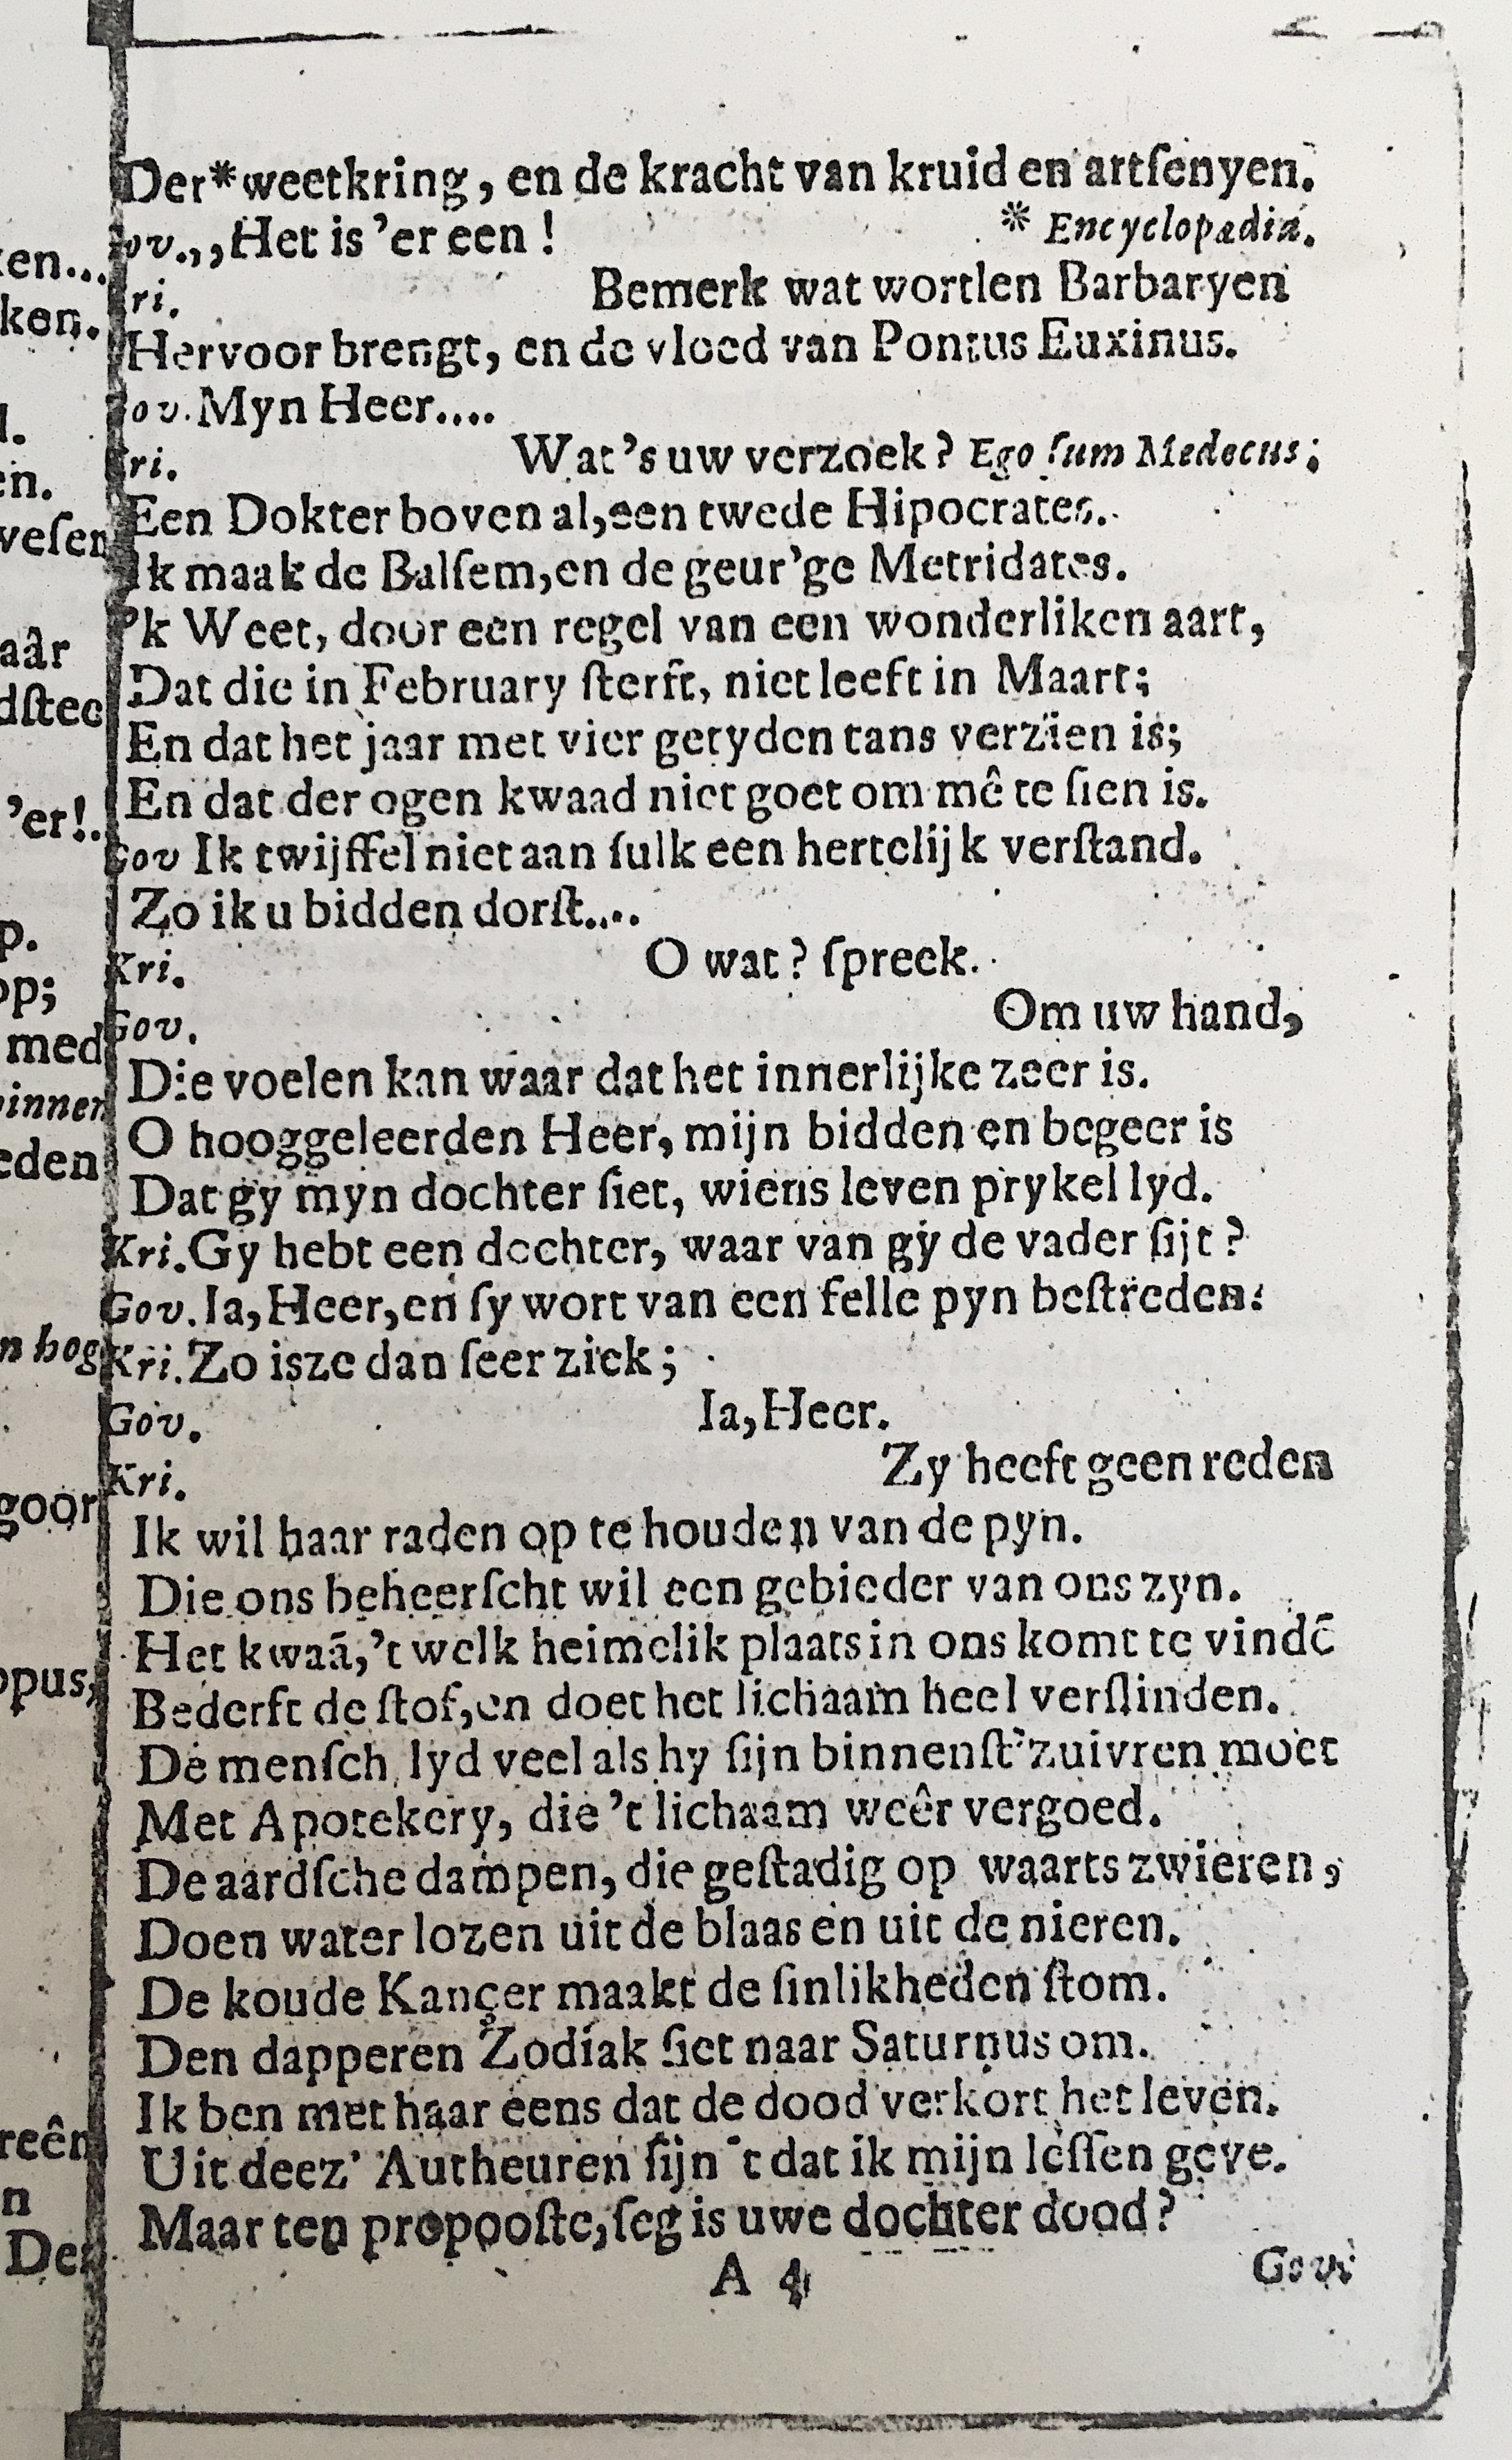 Der*weetkring, en de kracht van kruid en artſenyen.
ov.,,Het is 'er een!
* Encyclopadia.
ri.
Bemerk wat wortlen Barbaryen
Hervoor brengt, en de vloed van Pontus Euxinus.
ov. Myn Heer....
ri.
Wat 's uw verzoek? Ego ſum Medecus;
Een Dokter boven al, een twede Hipocrates.
Ik maak de Balſem, en de geur'ge Metridates.
'k Weet, door een regel van een wonderliken aart,
Dat die in February ſterft, niet leeft in Maart;
En dat het jaar met vier getyden tans verzien is;
En dat der ogen kwaad niet goet om mê te ſien is.
Gov Ik twijffel niet aan ſulk een hertelijk verſtand.
Zo ik u bidden dorſt....
Kri.
O wat? ſpreek.
Gov.
Om uw hand,
Die voelen kan waar dat het innerlijke zeer is.
O hooggeleerden Heer, mijn bidden en begeer is
Dat gy myn dochter ſiet, wiens leven prykel lyd.
Kri. Gy hebt een dochter, waar van gy de vader ſijt?
Gov. Ia, Heer, en ſy wort van een felle pyn beſtreden.
Kri. Zo isze dan ſeer ziek;
Gov.
Ia, Heer.
Kri.
Zy heeft geen reden
Ik wil haar raden op te houden van de pyn.
Die ons beheerſcht wil een gebieder van ons zyn.
Het kwaā, 't welk heimelik plaats in ons komt te vindē
Bederft de ſtof, en doet het lichaam heel verſlinden.
De menſch lyd veel als hy ſijn binnenſt' zuivren moet
Met Apotekery, die 't lichaam weêr vergoed.
De aardſche dampen, die geſtadig op waarts zwieren,
Doen water lozen uit de blaas en uit de nieren.
De koude Kançer maakt de ſinlikheden ſtom.
Den dapperen Zodiak ſiet naar Saturnus om.
Ik ben met haar eens dat de dood verkort het leven.
Uit deez' Autheuren ſijn 't dat ik mijn leſſen geve.
Maar ten propooſte, ſeg is uwe dochter dood?
A 4
Gov.
ken...
ken.
l.
en.
veſen
aâr
dſtee
'er!
p.
op;
med
binnen
eden
n hog
goor
opus,
reên
n
Der